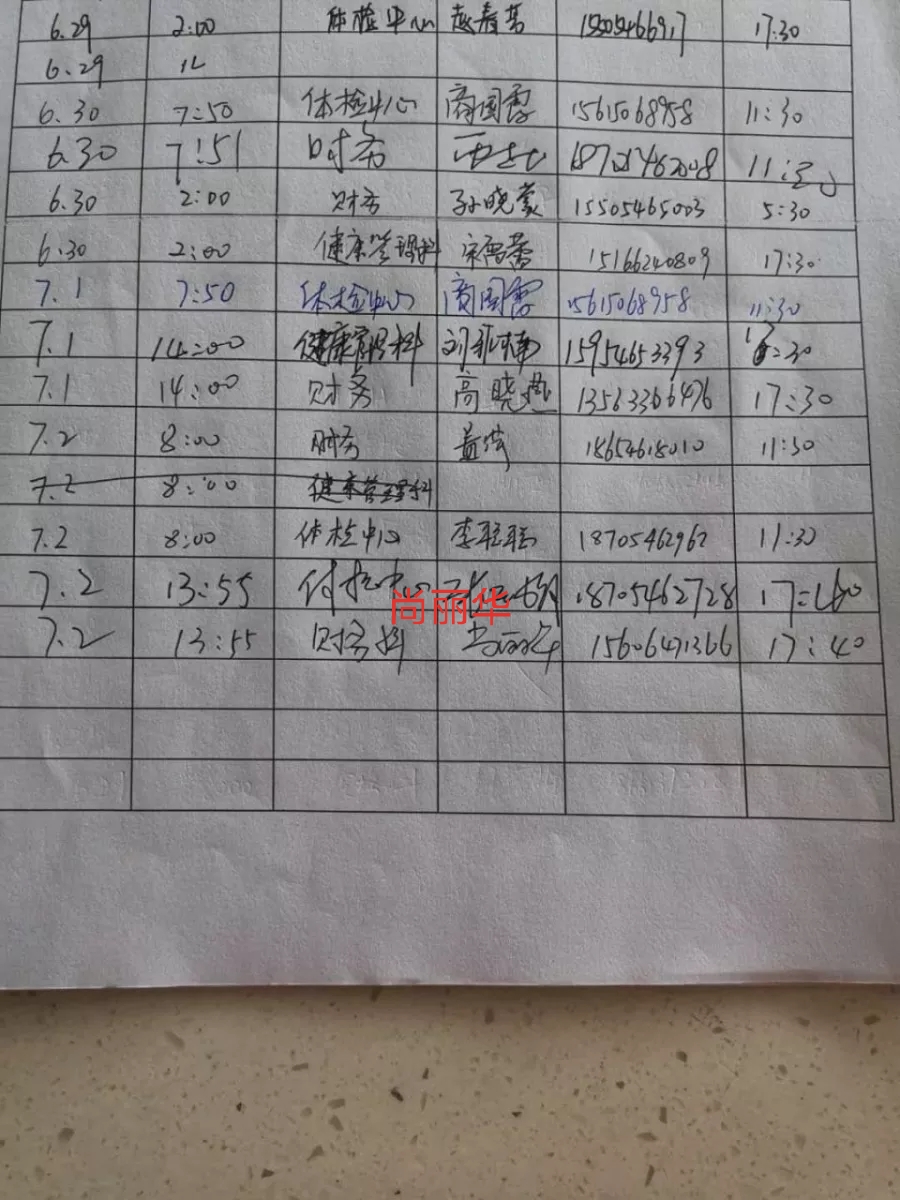 6.29 2:00 体检中心 赵春芳 17:30
6.29 12
6.30 7:50 体检中心 商国霞 15615068958 11:30
6.30 7:51 财务 18701462008
6.30 2:00 财务 孙晓蒙 15505465003 5:30
6.30 2:00 健康管理科 宋雪蕾 15166240809 17:30
7.1 7:50 体检中心 商国霞 15615068958 11:30
7.1 14:00 健康管理科 15954653393
7.1 14:00 财务 高晓燕 13563366476 17:30
7.2 8:00 财务 18654618010 11:30
7.2 8:00 健康管理科
7.2 8:00 体检中心 李聪聪 18705462962 11:30
7.2 13:55 体检中心 18705462728
尚丽华
7.2 13:55 财务科 尚丽华 15606471366 17:40